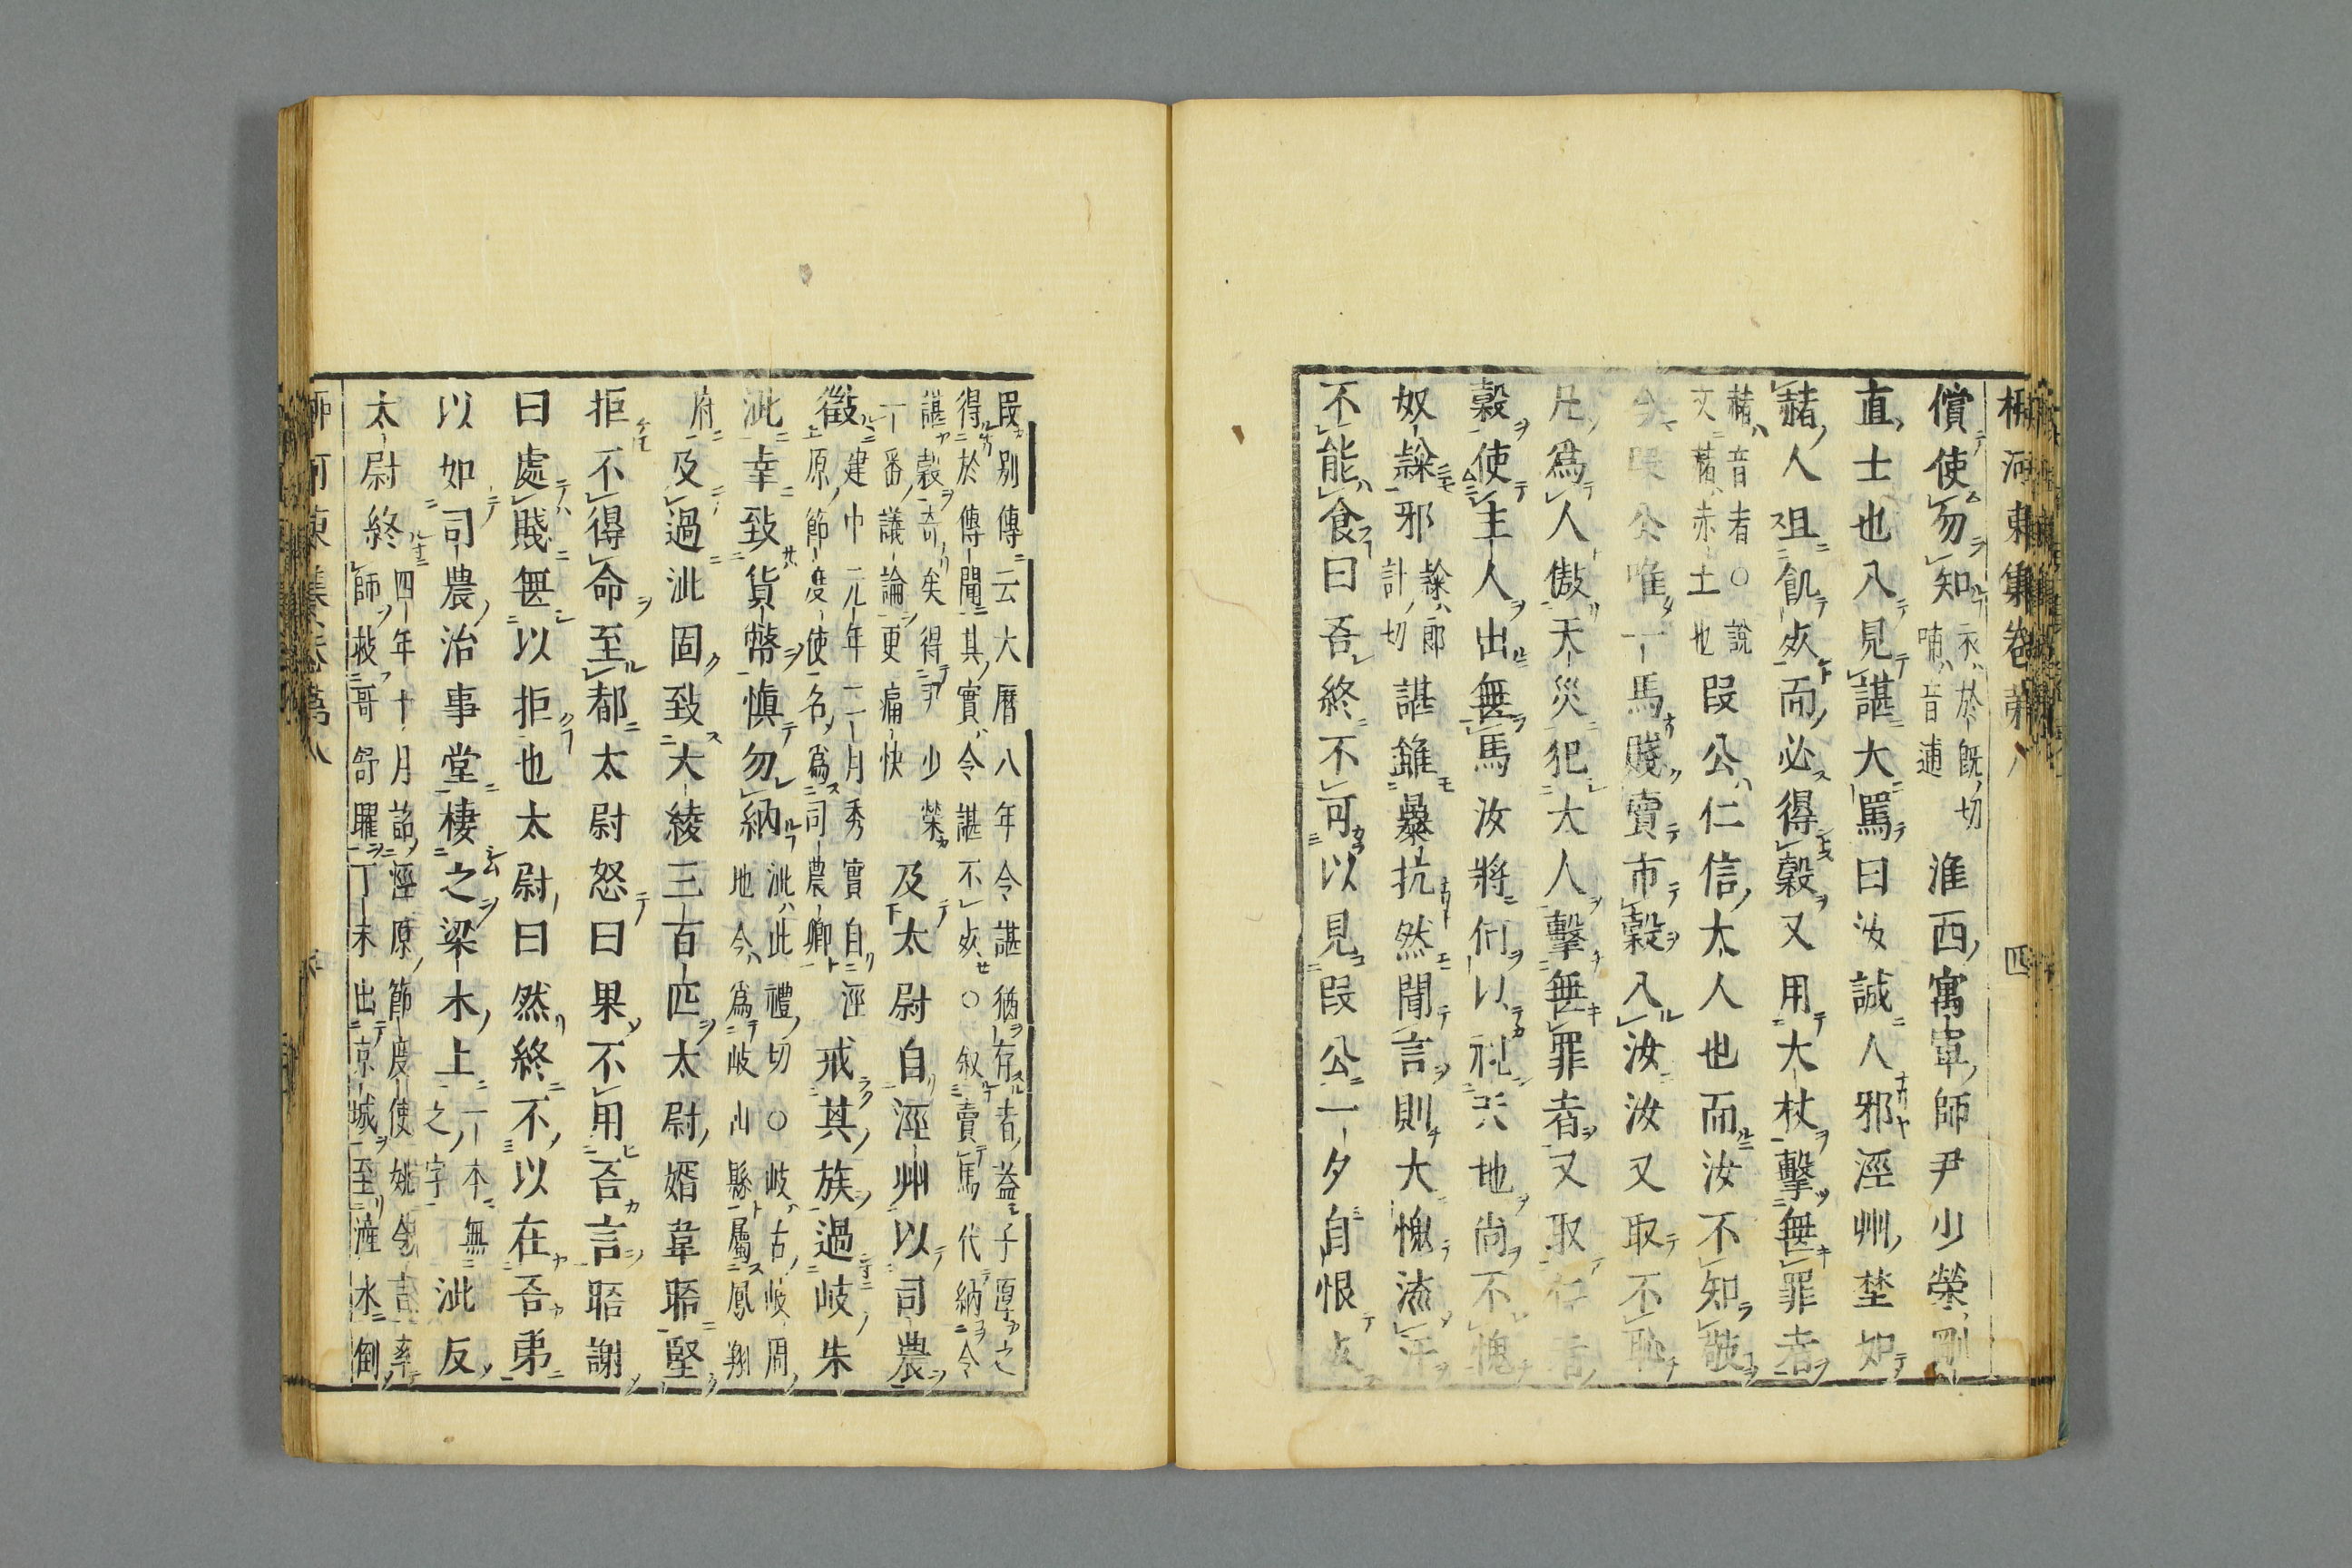 柳河東集卷第八 四
償使勿知衣於既切
喃音連淮西寓軍帥尹少榮剛
直士也入見諶大罵曰汝誠人邪涇州野如
赭赭音者○說
文赭赤土也人且飢死而必得穀又用大杖擊無罪者
段公仁信大人也而汝不知敬
今段公唯一馬賤賣市穀入汝汝又取不恥
凡為人傲天災犯大人擊無罪者又取仁者
穀使主人出無馬汝將何以視天地尚不愧
奴隸邪隸郎
計切諶雖暴抗然聞言則大愧流汗
不能食曰吾終不可以見段公一夕自恨死
段別傳云大曆八年令諶猶存者蓋子厚之
得於傳聞其實令諶不死○叙賣馬代納令
諶穀奇矣得尹少榮
一番議論更痛快及太尉自涇州以司農
徵建中元年二月秀實自涇
原節度使名為司農卿戒其族過岐朱
泚幸致貨幣慎勿納泚此禮切○岐古岐周
地今為岐山縣屬鳳翔
府及過泚固致大綾三百匹太尉婿韋晤堅
拒不得命至都太尉怒曰果不用吾言晤謝
曰處賤無以拒也太尉曰然終不以在吾弟
以如司農治事堂棲之梁木上一本無
之字泚反
太尉終四年十月詔涇原節度使姚令言率
師救哥舒曜丁未出京城至滻水倒
柳河東集卷第八